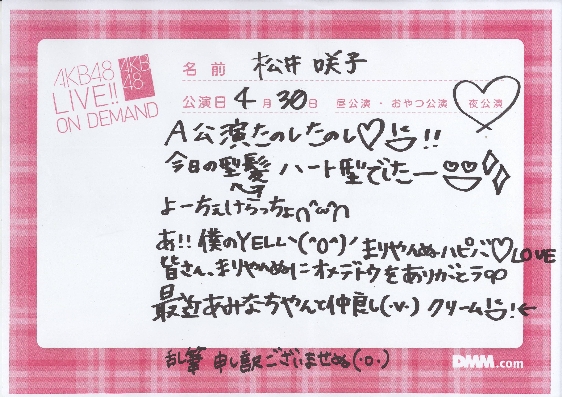 AKB48
LIVE!!
ON DEMAND
AKB
48
名前 松井咲子
公演日 4月30日 昼公演・おやつ公演 夜公演
A公演たのしたのし♡!!
今日の型髪 ハート型でしたー
ヘア
よーちぇけらっちょ∩^ω^∩
あ!!僕のYELL＼(^o^)／まりやんぬハピバ♡LOVE
皆さん、まりやんぬにオメデトウをありがとう∞
最近あみなちゃんと仲良し(・v・) クリーム!←
乱筆 申し訳ございませぬ(・o・)
DMM.com